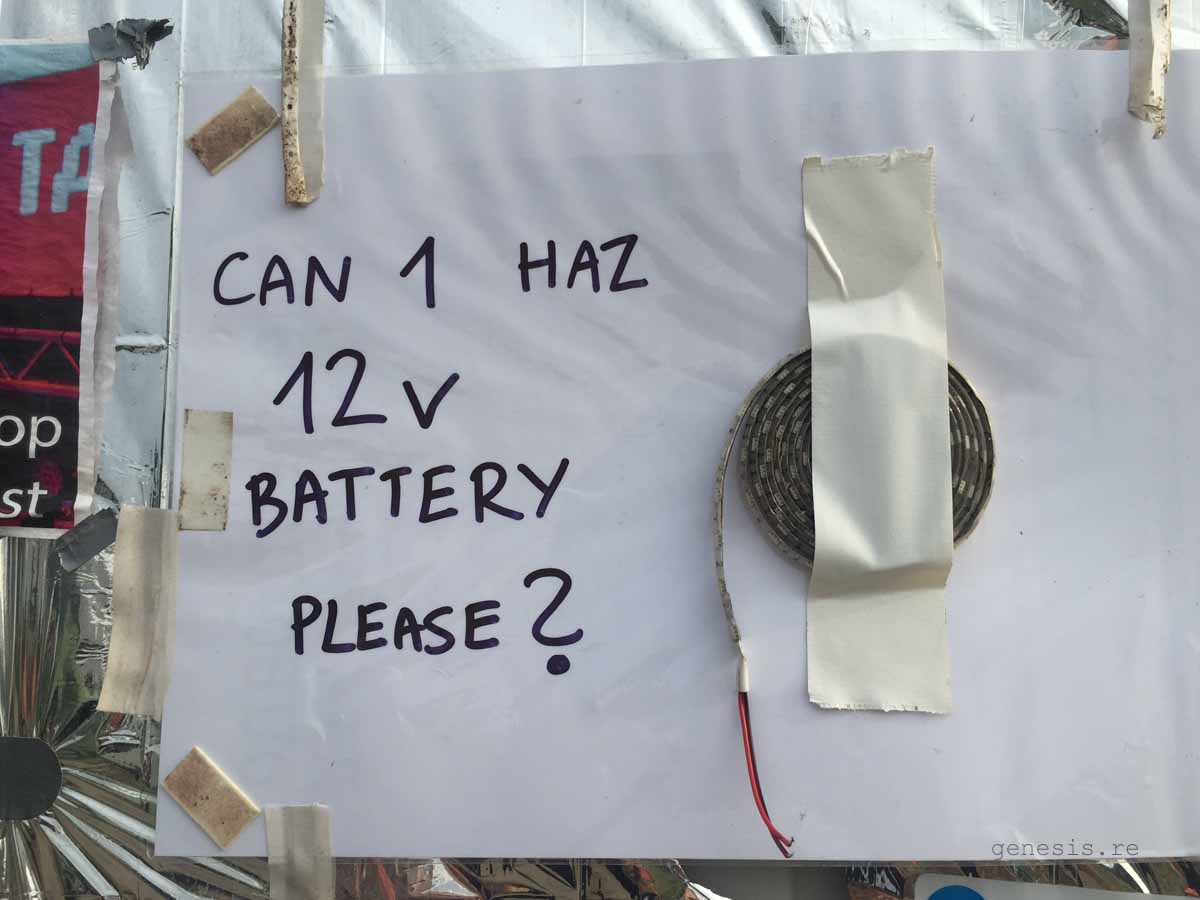 TA
op
st
CAN 1 HAZ
12V
BATTERY
PLEASE?
genesis.re